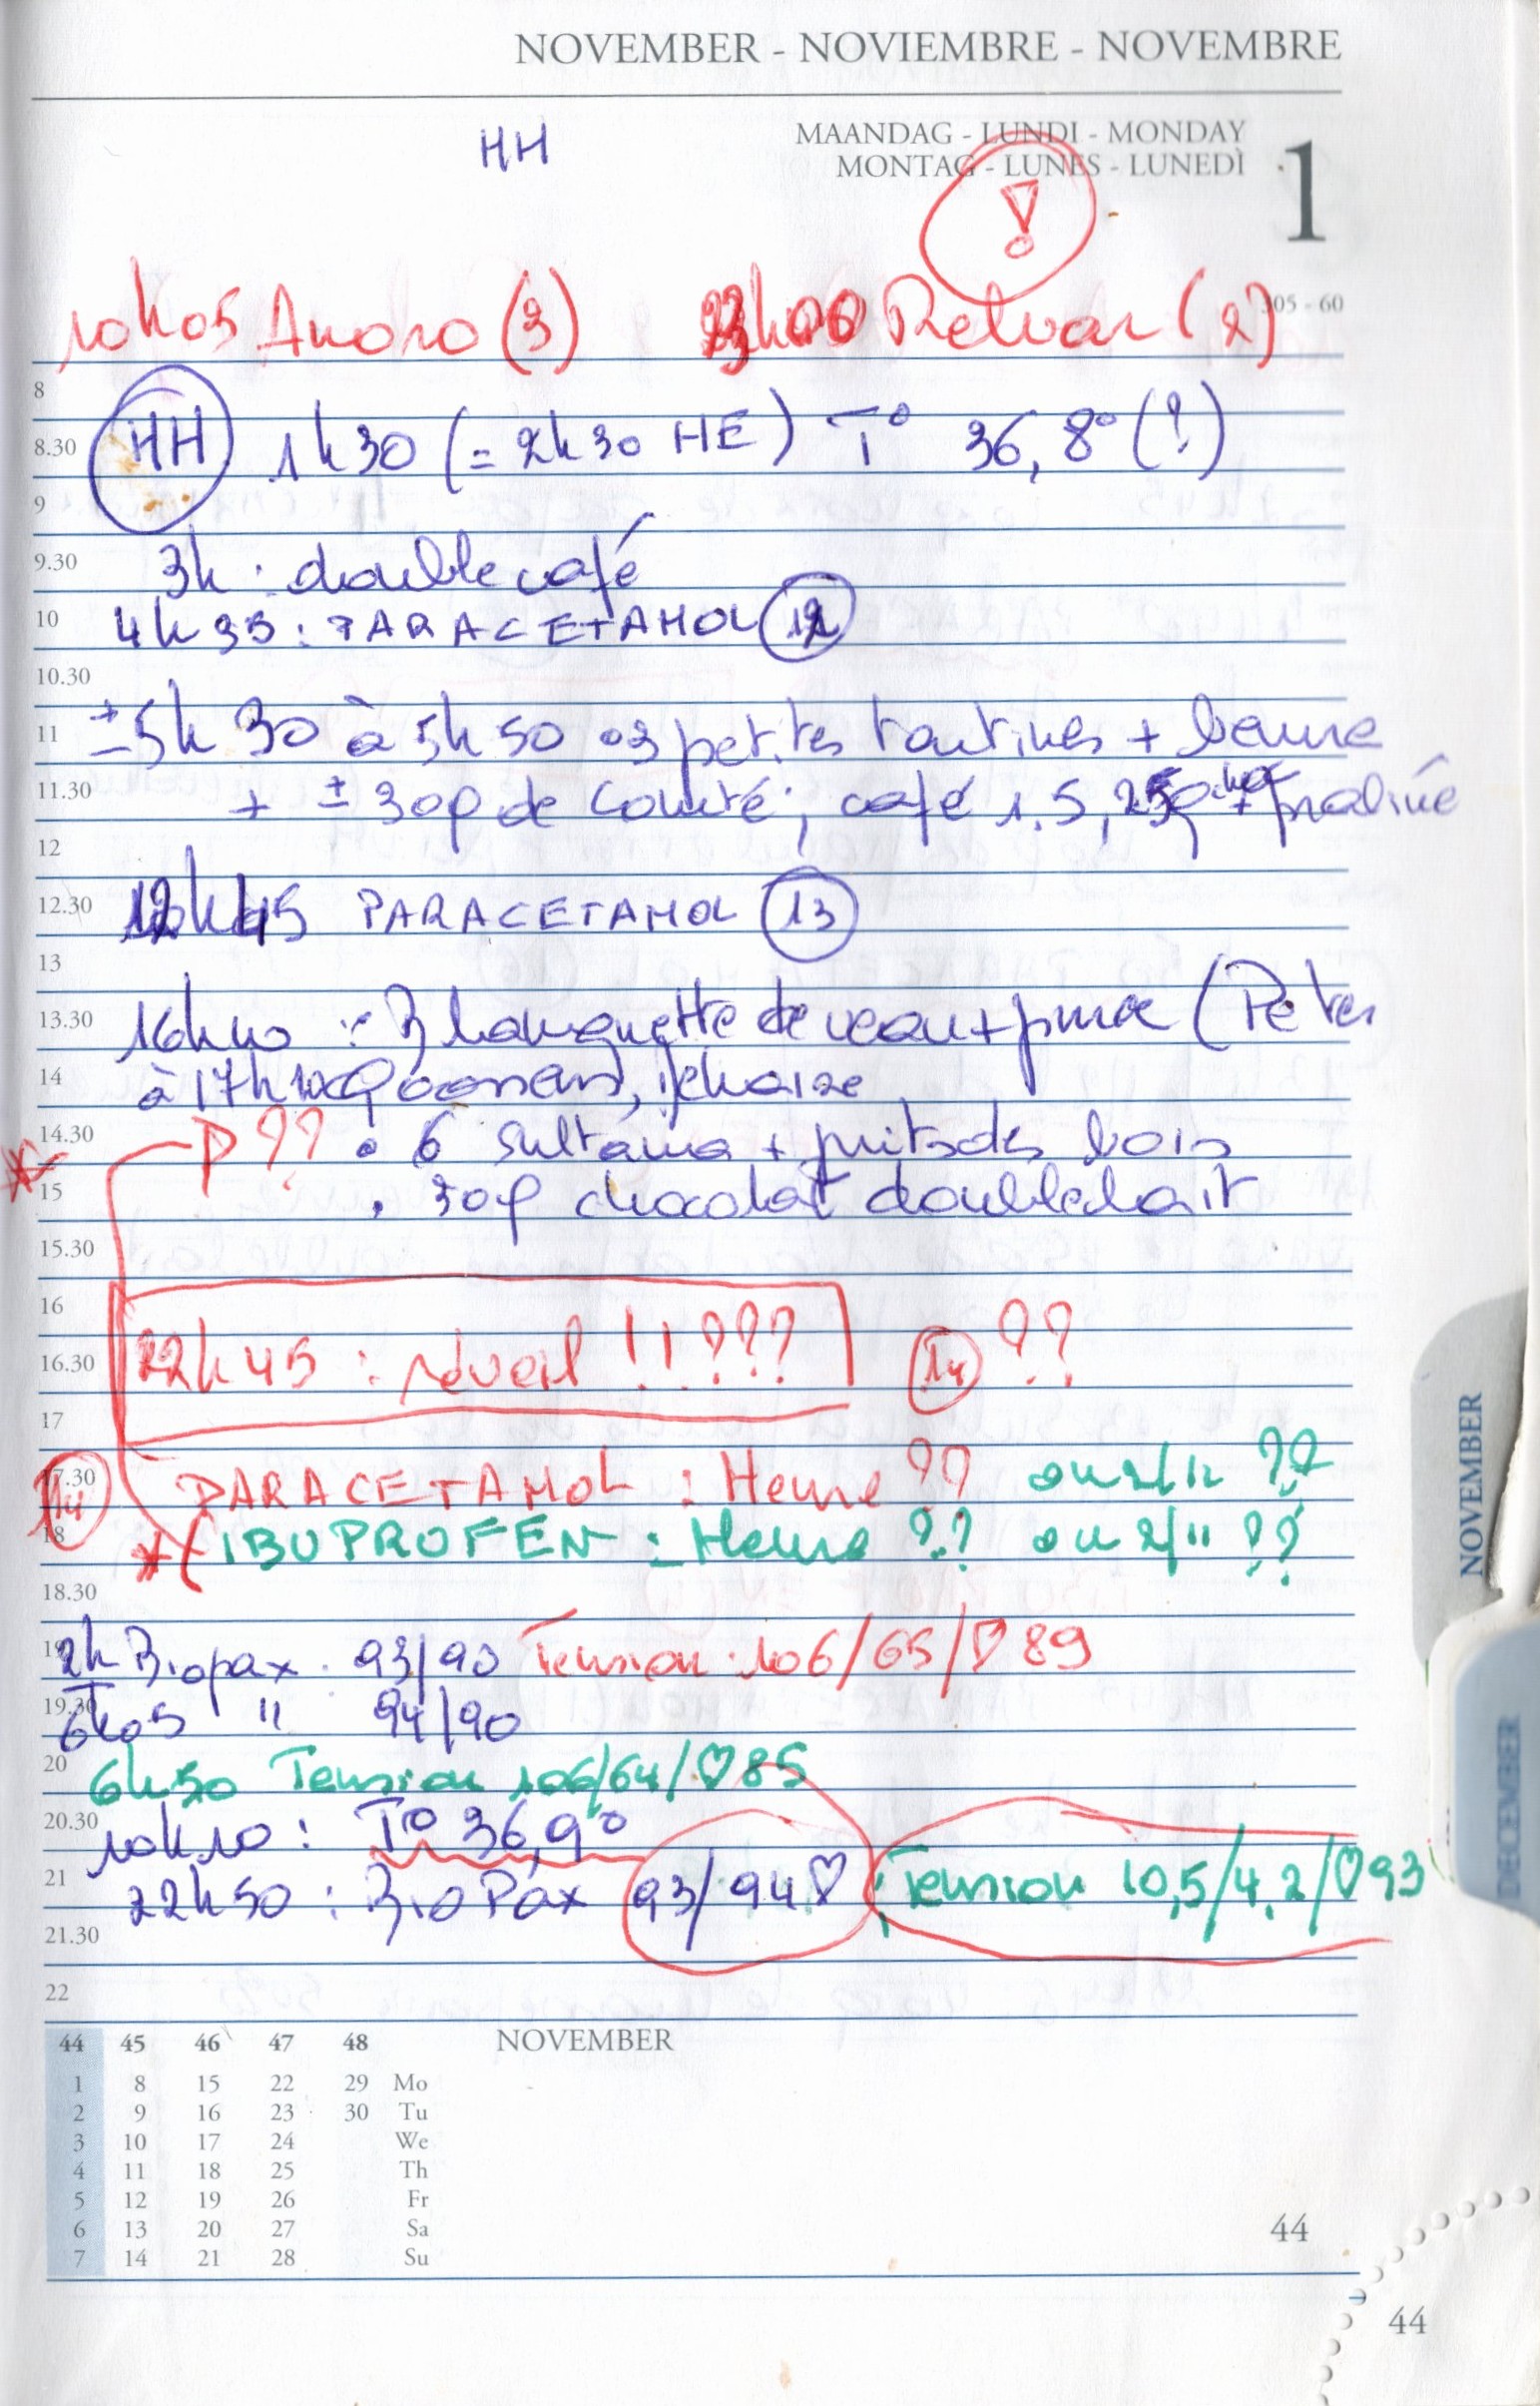 NOVEMBER - NOVIEMBRE - NOVEMBRE
HH
MAANDAG - LUNDI - MONDAY
MONTAG - LUNES - LUNEDÌ
1
!
305 - 60
10h05 Anoro (3) 23h00 Relvar (2)
8
HH 1h30 (= 2h30 HE) T° 36,8° (!)
8.30
9
9.30
3h : double café
10
4h35 : PARACETAMOL 12
10.30
11
± 5h30 à 5h50 3 petites tartines + beurre
11.30
+ ± 30g de Comté ; café 1.5, praliné
12
12.30
12h45 PARACETAMOL 13
13
13.30
16h40 : Blanquette de veau + purée (Peter
14
à 17h Goossens), 1 choize
14.30
P ?? • 6 sultana + fruits des bois
15
• 30g chocolat double lait
15.30
16
16.30
22h45 : réveil !!??? 14 ??
17
17.30
14 PARACETAMOL : Heure ?? ou 2/11 ??
18
* IBUPROFEN : Heure ?? ou 2/11 ??
18.30
19
2h Biopax 93/90 Tension 106/65/♡ 89
19.30
6h05 " 94/90
20
6h50 Tension 106/64/♡ 85
20.30
10h10 : T° 36,9°
21
22h50 : BioPax 93/94 ♡ Tension 10,5/4,2/♡ 93
21.30
22
44 45 46 47 48 NOVEMBER
1 8 15 22 29 Mo
2 9 16 23 30 Tu
3 10 17 24 We
4 11 18 25 Th
5 12 19 26 Fr
6 13 20 27 Sa
7 14 21 28 Su
44
44
NOVEMBER
DECEMBER